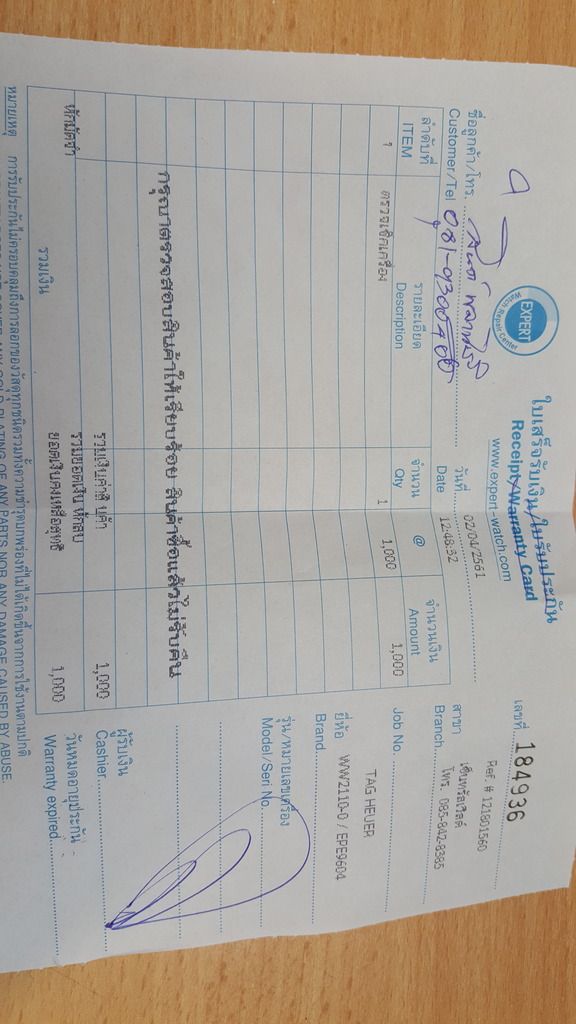 EXPERT
Watch Repair Center
ใบเสร็จรับเงิน/ใบรับประกัน
Receipt/Warranty Card
www.expert-watch.com
เลขที่ 184936
Ref. # 121801560
ชื่อลูกค้า/โทร.
Customer/Tel 081-9300400
วันที่ 02/04/2561
Date 12:48:32
สาขา เซ็นทรัลเวิลด์
Branch โทร. 085-842-8385
ลำดับที่ รายละเอียด จำนวน @ จำนวนเงิน
ITEM Description Qty Amount
1 ตรวจเช็คเครื่อง 1 1,000 1,000
Job No.
ยี่ห้อ TAG HEUER
Brand WW2110-0 / EPE9604
รุ่น/หมายเลขเครื่อง
Model/Seri No.
กรุณาตรวจสอบสินค้าให้เรียบร้อย สินค้าซื้อแล้วไม่รับคืน
รวมเงินค่าสินค้า 1,000
หักมัดจำ รวมยอดเงินหักลบ
รวมเงิน ยอดเงินคงเหลือสุทธิ 1,000
ผู้รับเงิน
Cashier
วันหมดอายุประกัน -
Warranty expired
หมายเหตุ การรับประกันไม่ครอบคลุมถึงการลอกของวัสดุทุกชนิดรวมทั้งความชำรุดบกพร่องที่ไม่ได้เกิดขึ้นจากการใช้งานตามปกติ
COVER ANY GOLD PLATING OF ANY PARTS NOR ANY DAMAGE CAUSED BY ABUSE.